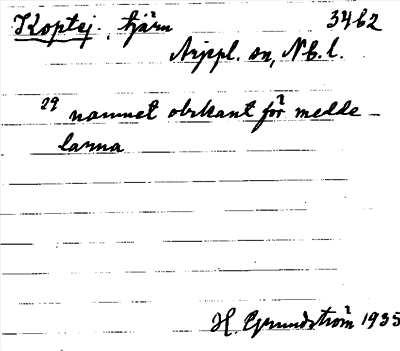 Koptej., tjärn 3462
Arjepl. sn, Nb. l.
29 namnet obekant för medde-
larna
H. Grundström 1935